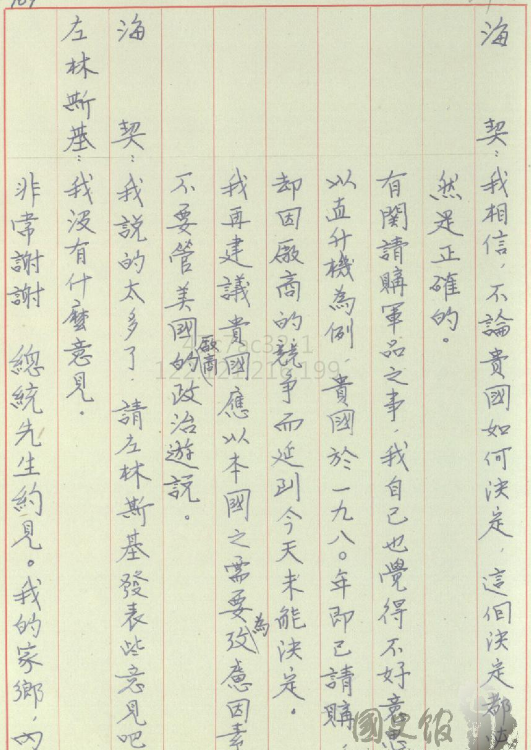 海　契：我相信，不論貴國如何決定，這個決定都
然是正確的。
有関請購軍品之事，我自己也覺得不好意
以直升機為例，貴國於一九八〇年即已請購
却因廠商的競爭而延到今天未能決定。
我再建議貴國應以本國之需要為攷慮因素
不要管美國廠商的政治遊說。
海　契：我說的太多了，請左林斯基發表些意見吧
左林斯基：我沒有什麼意見。
非常謝謝　總統先生約見。我的家鄉，
國史館